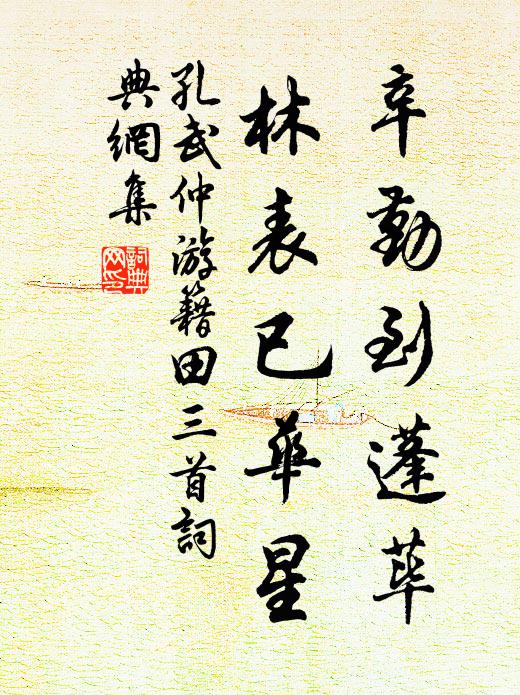 辛勤到蓬荜
林表已華星
孔武仲游籍田三首詞
典網集
詞典
网印